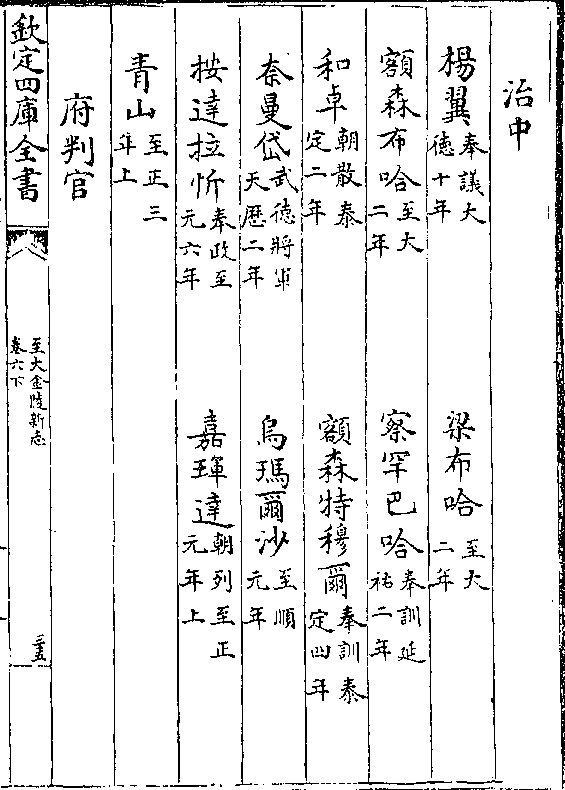 治中
楊翼奉議大德十年 梁布哈至大二年
額森布哈至大二年 察罕巴哈奉訓延祐二年
和卓朝散泰定二年 額森特穆爾奉訓泰定四年
奈曼岱武德將軍天歷二年 烏瑪爾沙至順元年
按達拉忻奉政至元六年 嘉琿達朝列至正元年上
青山至正三年上
府判官
欽定四庫全書 至大金陵新志卷六下 三五